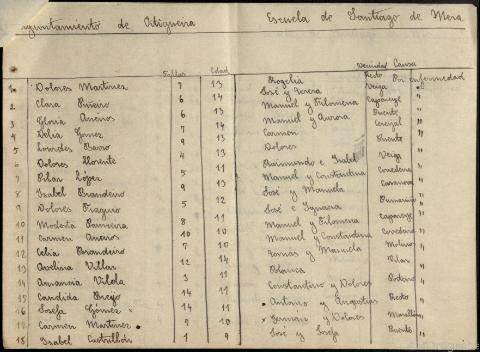 Ayuntamiento de Ortigueira Escuela de Santiago de Mera
Faltas Edad Vecindad Causa
1a Dolores Martínez 7 13 Rogelia Resto Por enfermedad
2 Clara Piñeiro 6 14 José y Veiga "
3 Gloria Aneiros 6 13 Manuel y Filomena "
4 Delia Gómez 7 14 Manuel y Aurora Puente "
5 Lourdes Barro 9 13 Carmen "
6 Dolores Llorente 4 13 Dolores Puente "
7 Pilar López 5 11 Raimundo e Isabel Veiga "
8 Isabel Brandeiro 9 13 Manuel y Constantina "
9 Dolores 5 12 José y Manuela Casanova "
10 Modesta 8 11 José e Ignacia "
11 Carmen Aneiros 10 10 Manuel y Filomena "
12 Celia Brandeiro 7 10 Manuel y Constantina "
13 Avelina Villar 12 14 Tomás y Manuela Molino "
14 Amansia Vilela 3 11 Blanca Pilar "
15 Candida Breijo 14 11 Constantino y Dolores "
16 Josefa Gómez 14 11 Antonio y Angustias Resto "
17 Carmen Martínez 7 10 Germán y Dolores "
18 Isabel Castrillón 1 9 José y Josefa Puente "